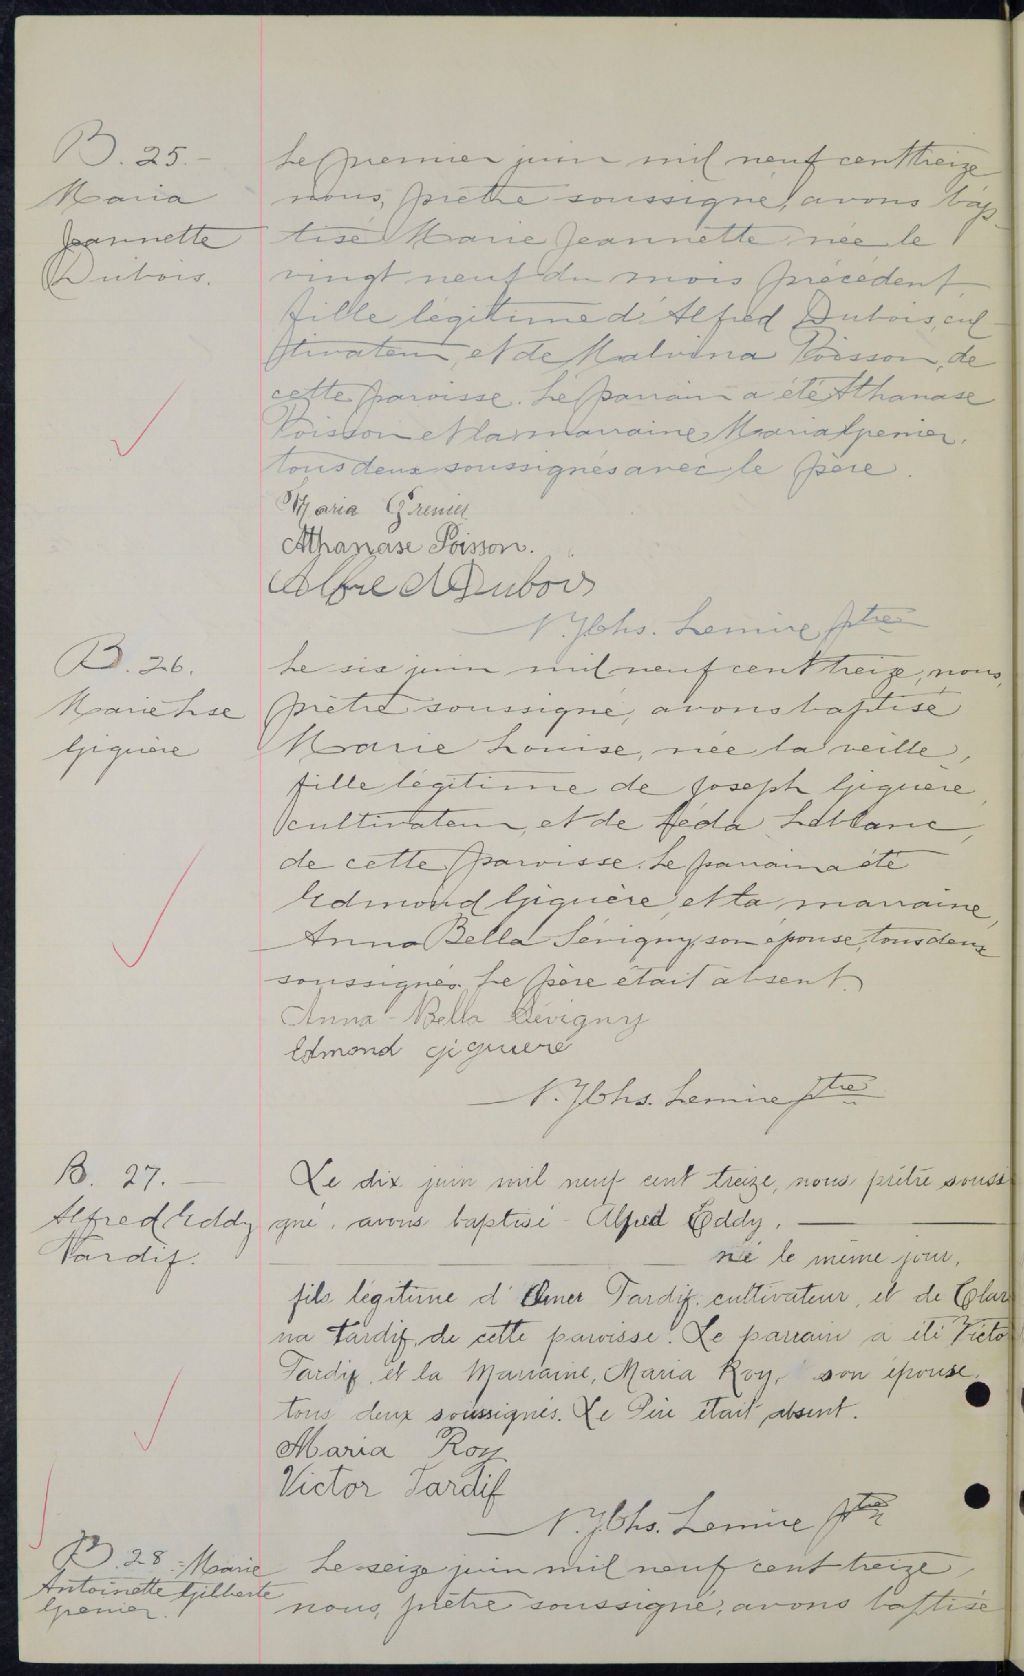 B. 25.-
Maria
Jeannette
Dubois.
Le premier juin mil neuf cent treize
nous, prêtre soussigné, avons bap-
tisé Marie Jeannette née le
vingt neuf du mois précédent,
fille légitime d'Alfred Dubois, cul-
tivateur, et de Malvina Poisson, de
cette paroisse. Le parrain a été Athanase
Poisson et la marraine Maria Grenier,
tous deux soussignés avec le père.
Maria Grenier
Athanase Poisson.
Alfred Dubois
N. Lemire ptre
B. 26.
Marie Lse
Giguère
Le six juin mil neuf cent treize, nous,
prêtre soussigné, avons baptisé
Marie Louise, née la veille,
fille légitime de Joseph Giguère,
cultivateur, et de Léda Leblanc,
de cette paroisse. Le parrain a été
Edmond Giguère, et la marraine,
Anna Bella Sévigny, son épouse, tous deux
soussignés. Le père était absent.
Anna-Bella Sévigny
Edmond Giguere
N. Lemire ptre
B. 27.-
Alfred Eddy
Tardif.
Le dix juin mil neuf cent treize, nous prêtre soussi
gné, avons baptisé Alfred Eddy,
né le même jour,
fils légitime d'Omer Tardif, cultivateur, et de Clari
na Tardif, de cette paroisse. Le parrain a été Victo
Tardif, et la Marraine, Maria Roy, son épouse,
tous deux soussignés. Le Père était absent.
Maria Roy
Victor Tardif
N. Lemire ptre
B. 28-Marie
Antoinette Gilberte
Grenier.
Le seize juin mil neuf cent treize,
nous, prêtre soussigné, avons baptisé